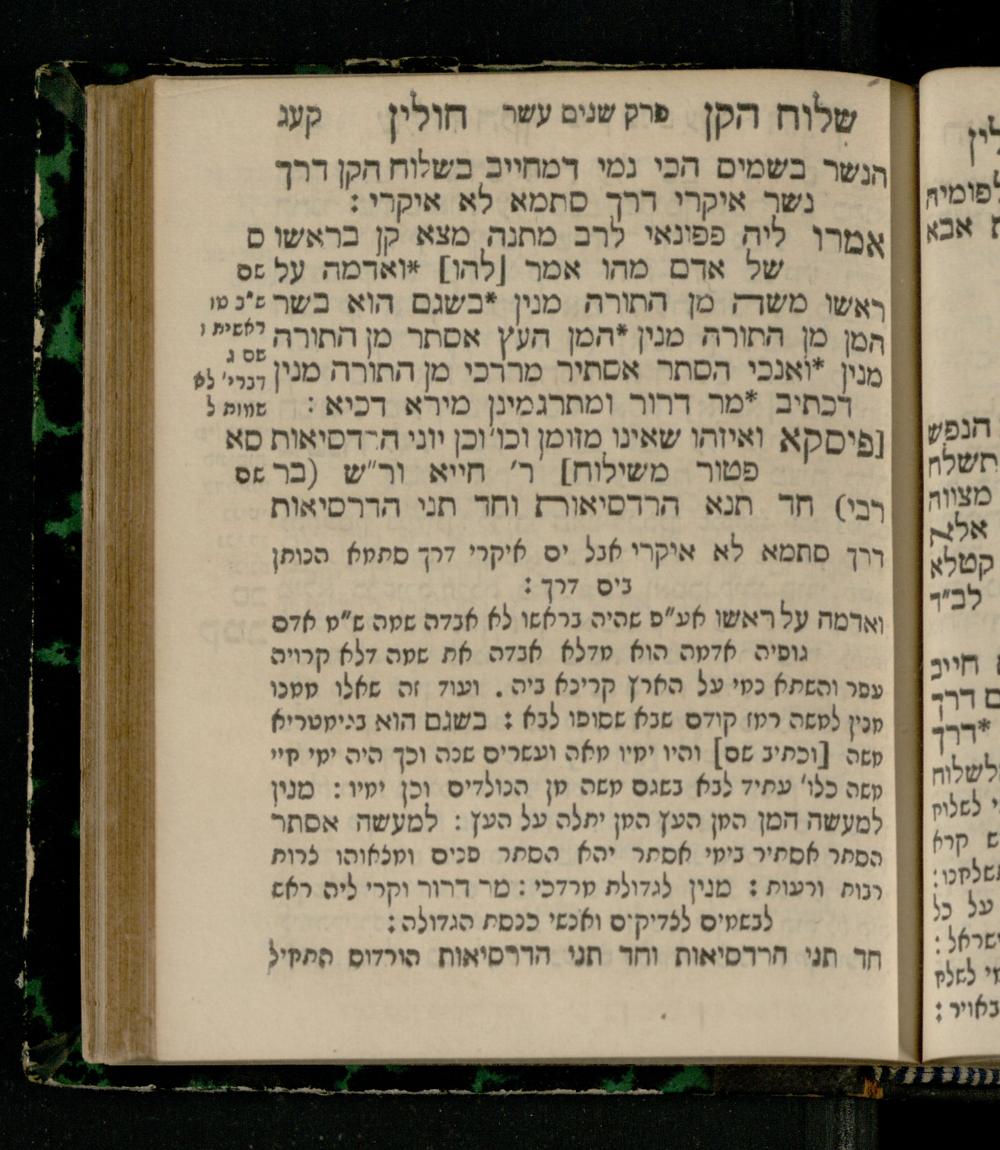 שלוח הקן פרק שנים עשר חולין קעג
הנשר בשמים הכי נמי דמחייב בשלוח הקן דרך
נשר איקרי דרך סתמא לא איקרי :
אמרו ליה פפונאי לרב מתנה מצא קן בראשו ס
של אדם מהו אמר [להו] *ואדמה על שם
ראשו משה מן התורה מנין *בשגם הוא בשר ש"ב מו
המן מן התורה מנין *המן העץ אסתר מן התורה ראשית ו
שם ג
מנין *ואנכי הסתר אסתיר מרדכי מן התורה מנין דברי' לא
דכתיב *מר דרור ומתרגמינן מירא דכיא : שמות ל
[פיסקא ואיזהו שאינו מזומן וכו' וכן יוני הרדסיאות סא
פטור משילוח] ר' חייא ור"ש (בר שם
רבי) חד תנא הרדסיאות וחד תני הדרסיאות
דרך סתמא לא איקרי אבל ים איקרי דרך סתמא הנותן
בים דרך :
ואדמה על ראשו אע"פ שהיה בראשו לא אבדה שמה ש"מ אדם
גופיה אדמה הוא מדלא אבדה את שמה דלא קרויה
עפר והשתא כמי על הארץ קרינא ביה . ועוד זה שאלו ממנו
מנין למשה רמז קודם שבא שסופו לבא : בשגם הוא בגימטריא
משה [וכתיב שם] והיו ימיו מאה ועשרים שנה וכך היה ימי חיי
משה כלו' עתיד לבא בשגם משה מן הנולדים וכן ימיו : מנין
למעשה המן המן העץ המן יתלה על העץ : למעשה אסתר
הסתר אסתיר בימי אסתר יהא הסתר פנים ומצאוהו צרות
רבות ורעות : מנין לגדולת מרדכי : מר דרור וקרי ליה ראש
לבשמים לצדיקים ואנשי כנסת הגדולה :
חד תני הרדסיאות וחד תני הדרסיאות הורדוס התחיל
לין
לפומיה
אבא
הנפש
תשלח
מצווה
אלא
קטלא
לב"ד
חייב
דרך
*דרך
לשלוח
לשלוח
קרא
על כל
ישראל :
לשלח
באויר :